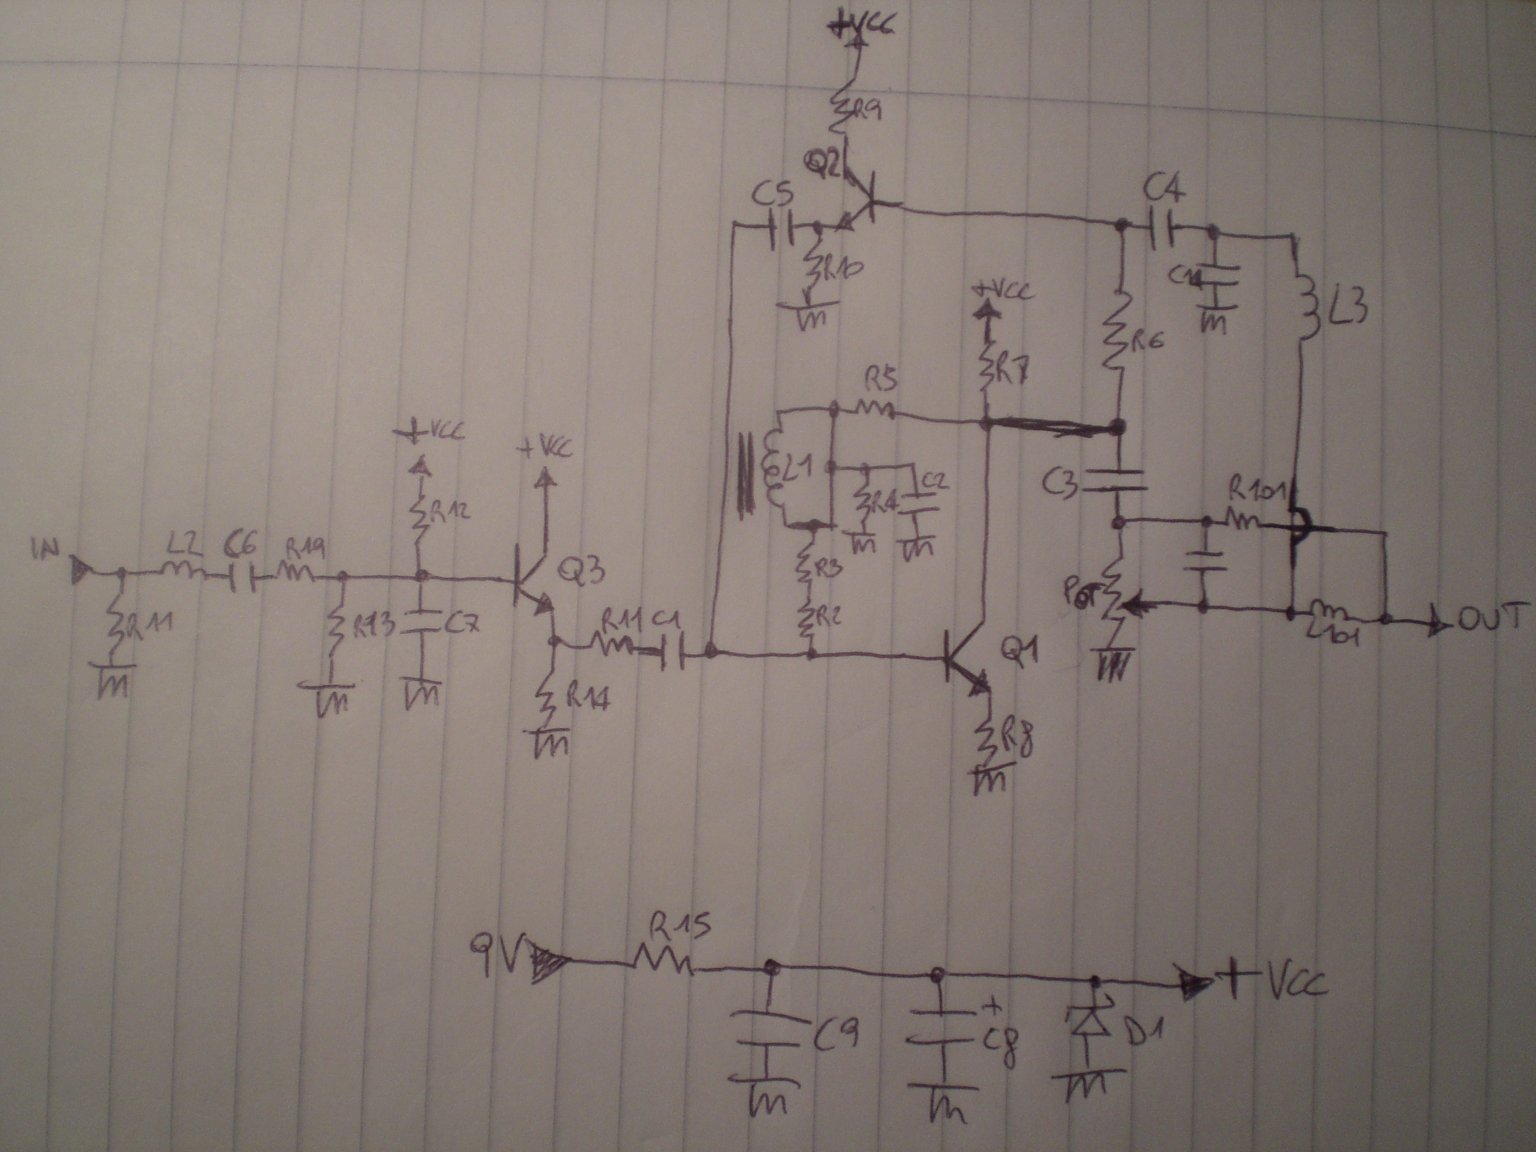 +VCC
R9
Q2
C5
C4
R10
C11
+VCC
L3
R7
R6
R5
+VCC
+VCC
L1
R4
C2
C3
R101
R12
IN
L2
C6
R19
Q3
R3
POT
R11
R13
C7
R11
C1
R2
Q1
L101
OUT
R14
R8
9V
R15
+VCC
C9
+
C8
D1